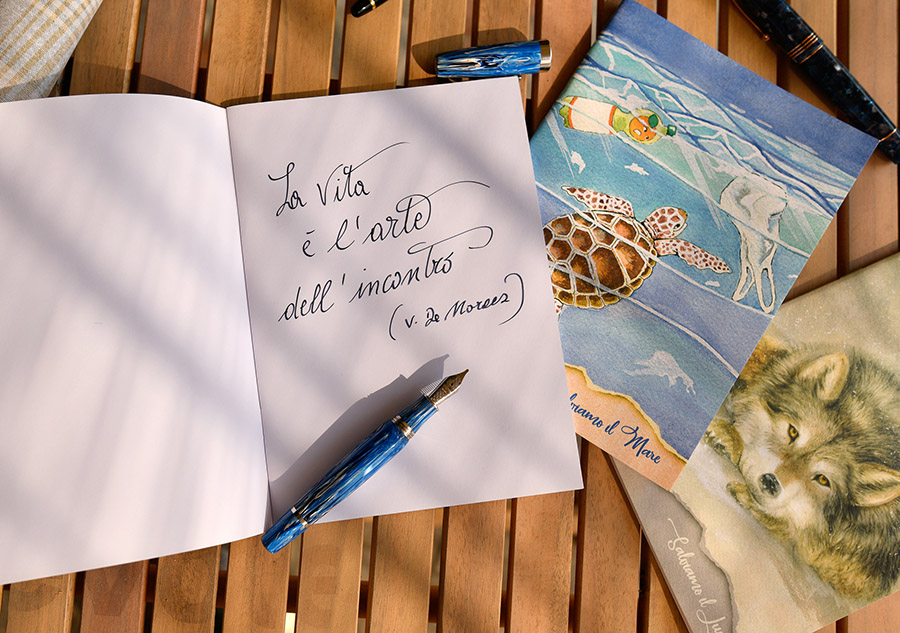 La vita
è l'arte
dell'incontro
(V. De Moraes)
il Mare
Salviamo il